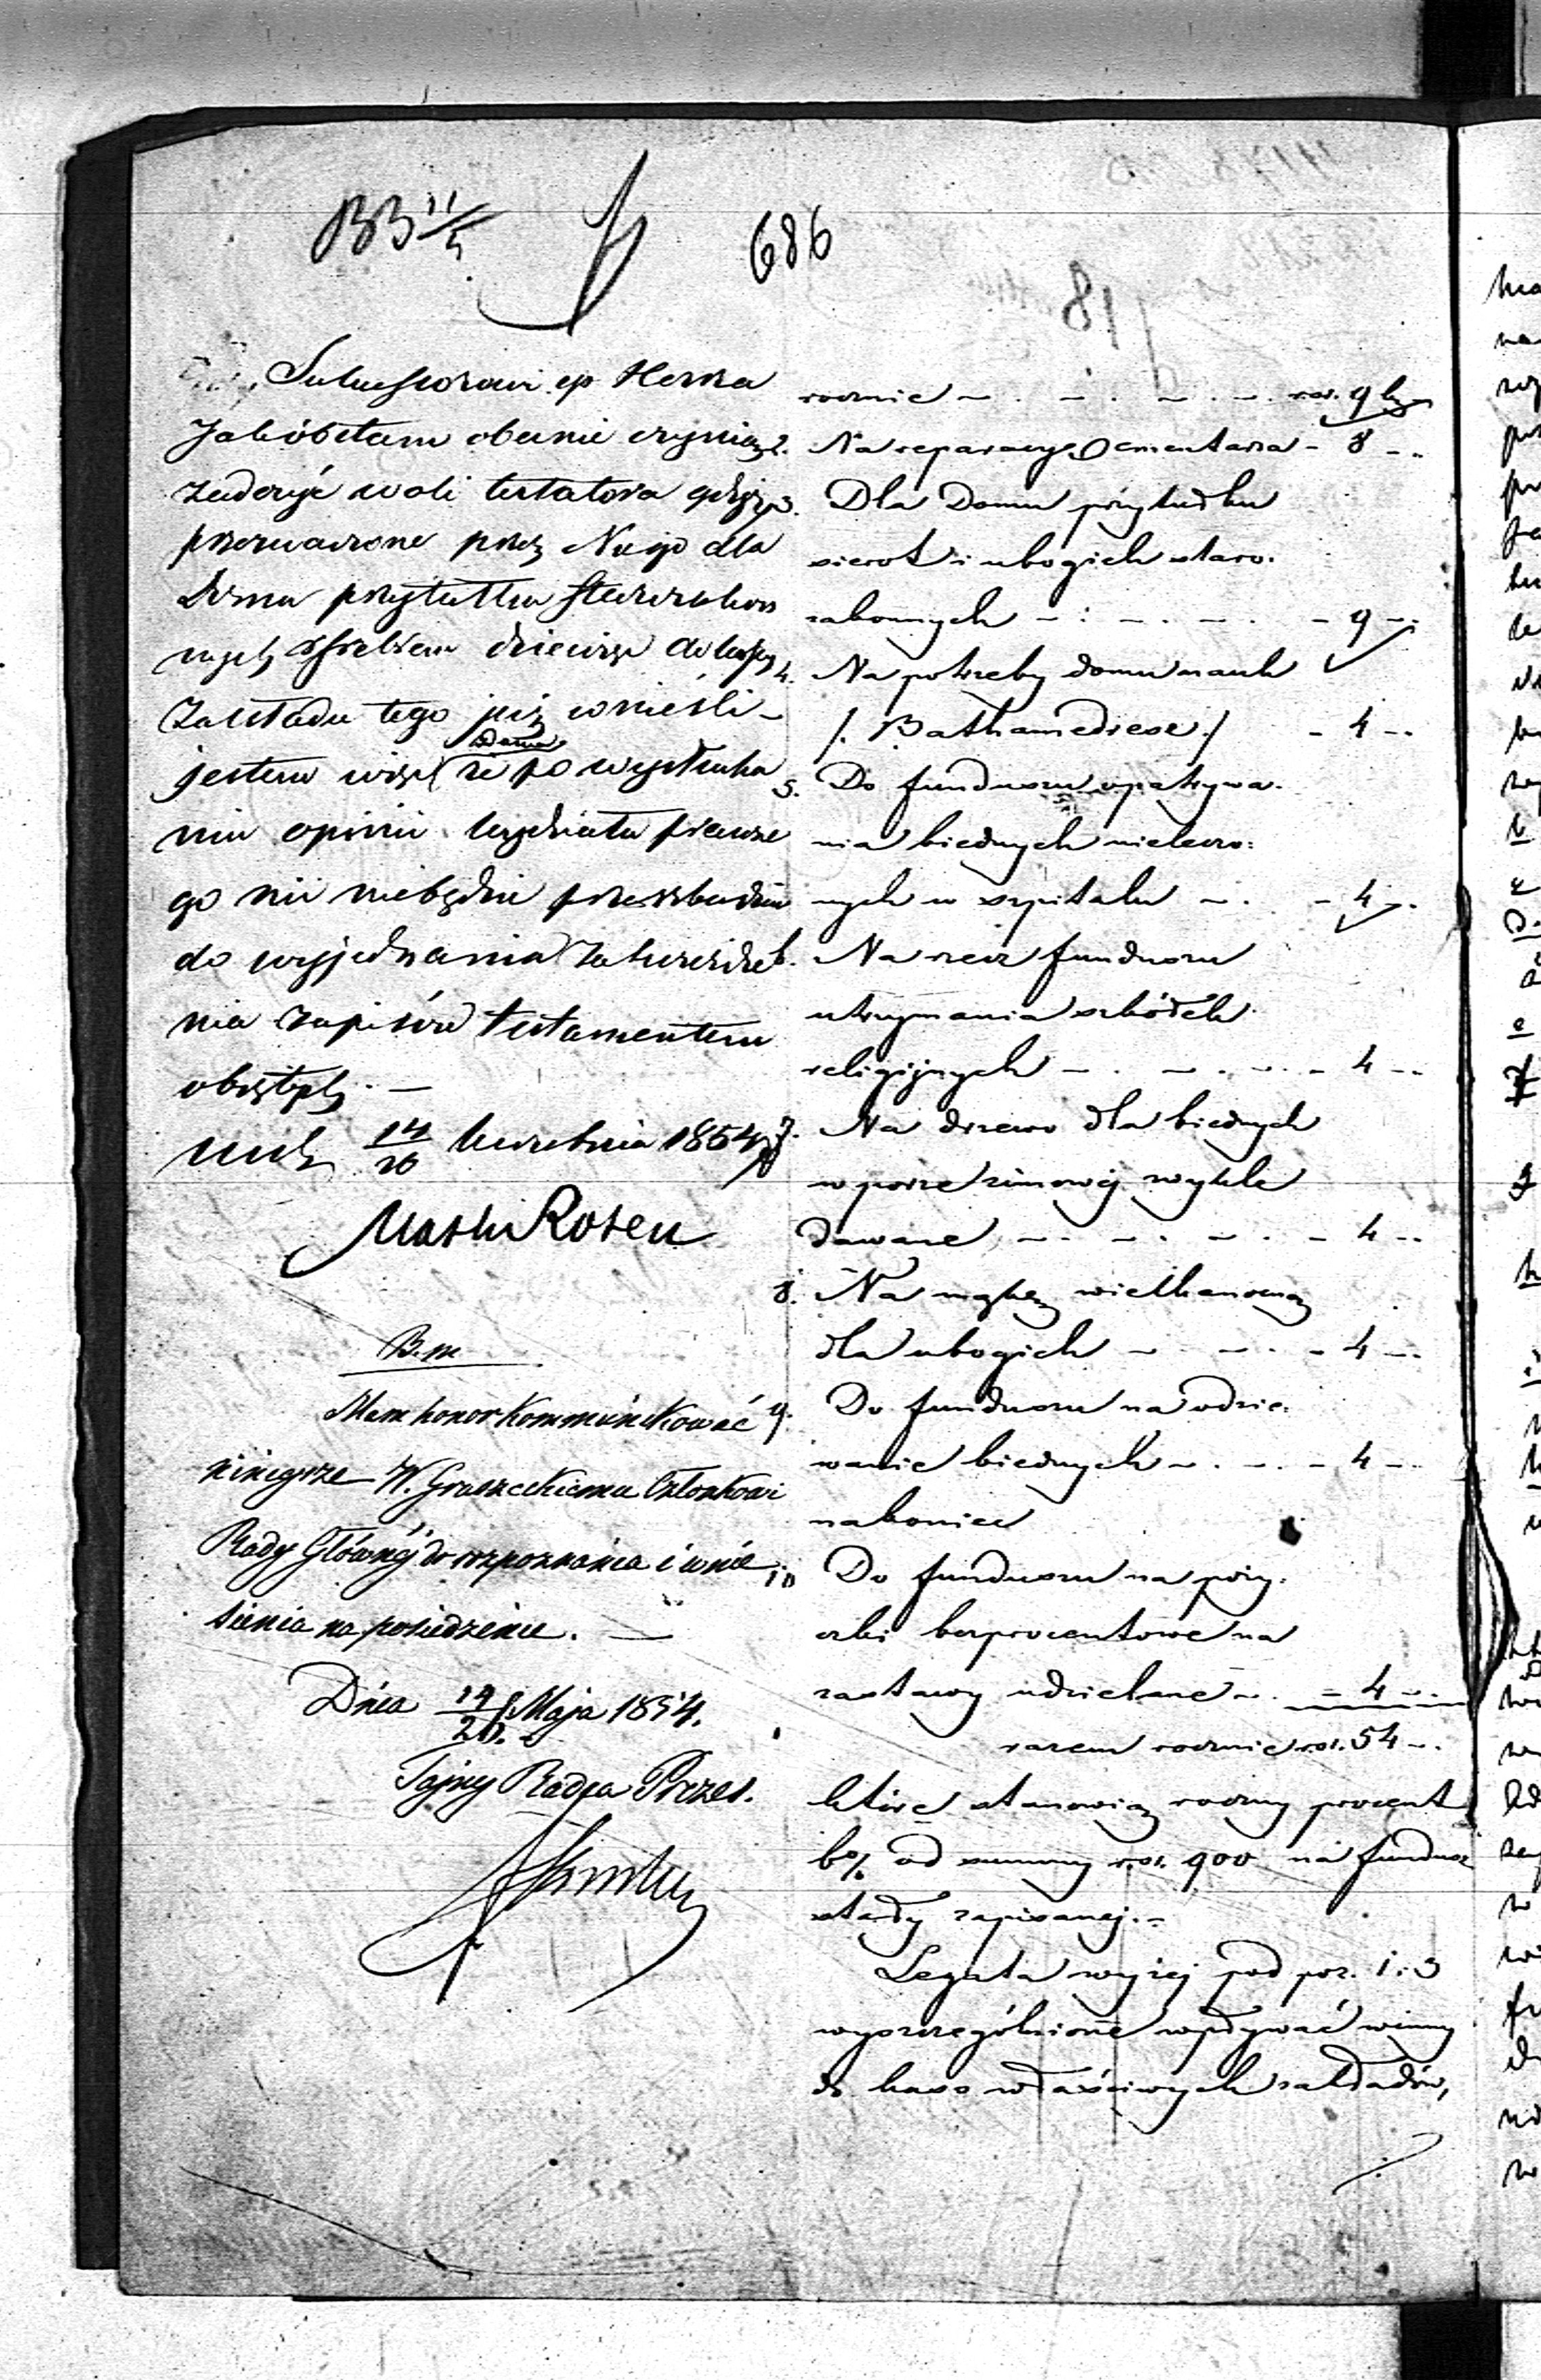 BB 11/5
686
Sukcessorowie ep Herza
Jakóbstam obecnie czynią
zadosyć woli testatora gdyż
przeznaczone przez Niego dla
Domu przytułku Starozakon
nych rsr dziewięć do kassy
Zakładu tego już wnieśli –
jestem więc zdania
że po wysłucha
niu opinii Wydziału prawne
go nic niebędzie przeszkadzać
do wyjednania zatwierdze
nia zapisów testamentem
objętych. —
14/26 Kwietnia 1854
Mathi Rosen
B. m
Mam honor kommunikować
niniejsze W. Graszeckiemu Członkowi
Rady Głównéj do rozpoznania i wnie
sienia na posiedzenie. —
Dnia 19/20. Maja 1854.
Tajny Radca Prezes.
rocznie — . — . — . — rsr. 9
2. Na reparacye Cmentarza – 8 –
3. Dla Domu przytułku
sierot i ubogich staro-
zakonnych — . — . — – 9 –
4. Na potrzeby domu nauk
/. Bathamedrese ./ – 4 –
5. Do funduszu opatrywa-
nia biednych nieleczo=
nych w szpitalu – . – 4 –
6. Na rzecz funduszu
utrzymania szkółek
religijnych – . – . – – 4 –
7. Na drzewo dla biednych
w porze zimowéj zwykle
dawane – . – . – . – 4 –
8. Na mąkę wielkanocną
dla ubogich – – . – 4 –
9. Do funduszu na odzie-
wanie biednych – . – . – 4 –
nakoniec
10 Do funduszu na poży-
czki bezprocentowe na
zastawy udzielane – . – 4 –
razem rocznie rsr. 54 –
które stanowią roczny procent
6% od summy rsr. 900 na fundusz
stały zapisanéj. –
Legata wyżej pod poz. 1 : 3
wyszczególnione wpływać winny
do kass właściwych zakładów,